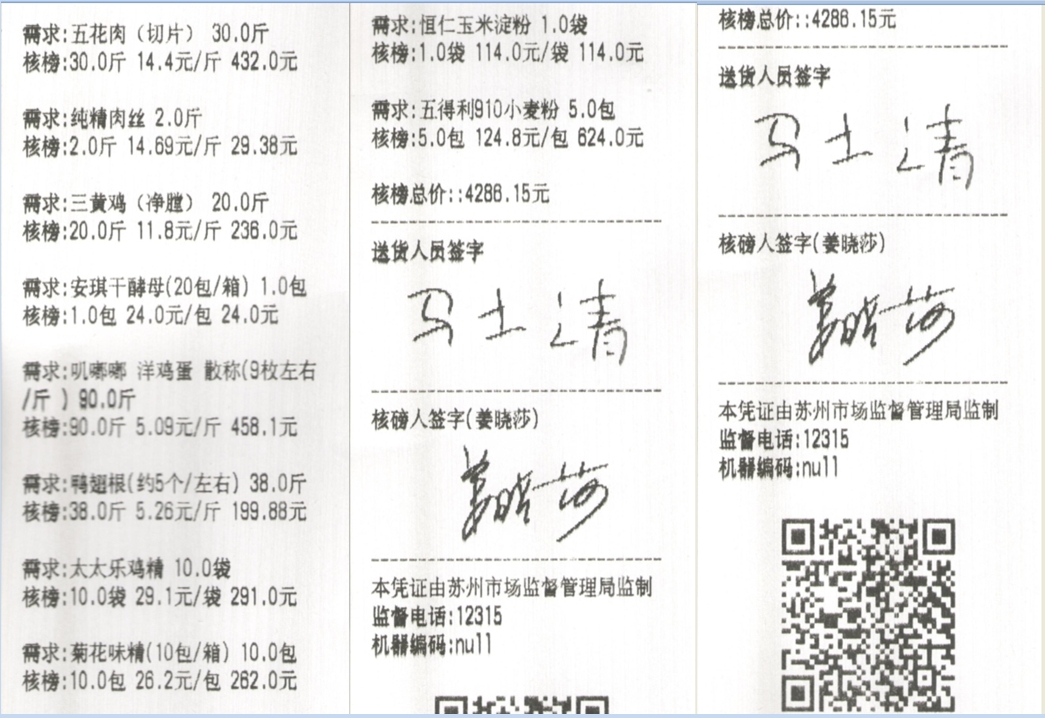 需求:五花肉（切片） 30.0斤
核榜:30.0斤 14.4元/斤 432.0元
需求:纯精肉丝 2.0斤
核榜:2.0斤 14.69元/斤 29.38元
需求:三黄鸡（净膛） 20.0斤
核榜:20.0斤 11.8元/斤 236.0元
需求:安琪干酵母(20包/箱) 1.0包
核榜:1.0包 24.0元/包 24.0元
需求:叽嘟嘟 洋鸡蛋 散称(9枚左右
/斤 ) 90.0斤
核榜:90.0斤 5.09元/斤 458.1元
需求:鸭翅根(约5个/左右) 38.0斤
核榜:38.0斤 5.26元/斤 199.88元
需求:太太乐鸡精 10.0袋
核榜:10.0袋 29.1元/袋 291.0元
需求:菊花味精(10包/箱) 10.0包
核榜:10.0包 26.2元/包 262.0元
需求:恒仁玉米淀粉 1.0袋
核榜:1.0袋 114.0元/袋 114.0元
需求:五得利910小麦粉 5.0包
核榜:5.0包 124.8元/包 624.0元
核榜总价::4286.15元
送货人员签字
马士清
核磅人签字(姜晓莎)
姜晓莎
本凭证由苏州市场监督管理局监制
监督电话:12315
机器编码:null
核榜总价::4286.15元
送货人员签字
马士清
核磅人签字(姜晓莎)
姜晓莎
本凭证由苏州市场监督管理局监制
监督电话:12315
机器编码:null